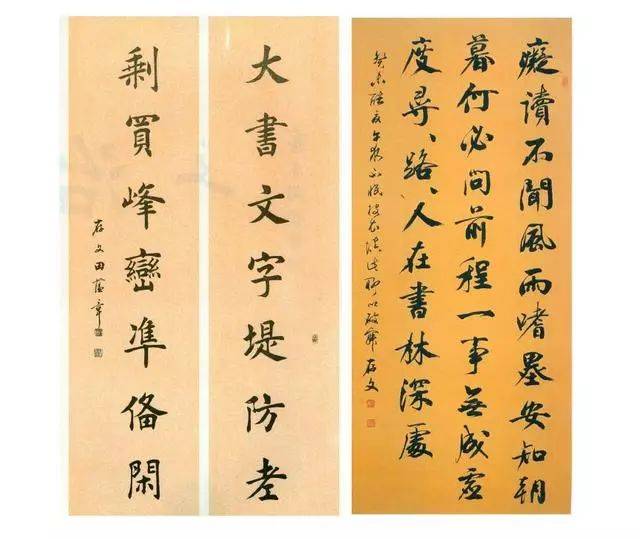 癡讀不聞風雨嗜墨安知朝
暮何必問前程一事無成虛
度尋、路、人在書林深處
癸未
存文
大書文字堤防老
剩買峰巒凖俻閑
存文田蘊章